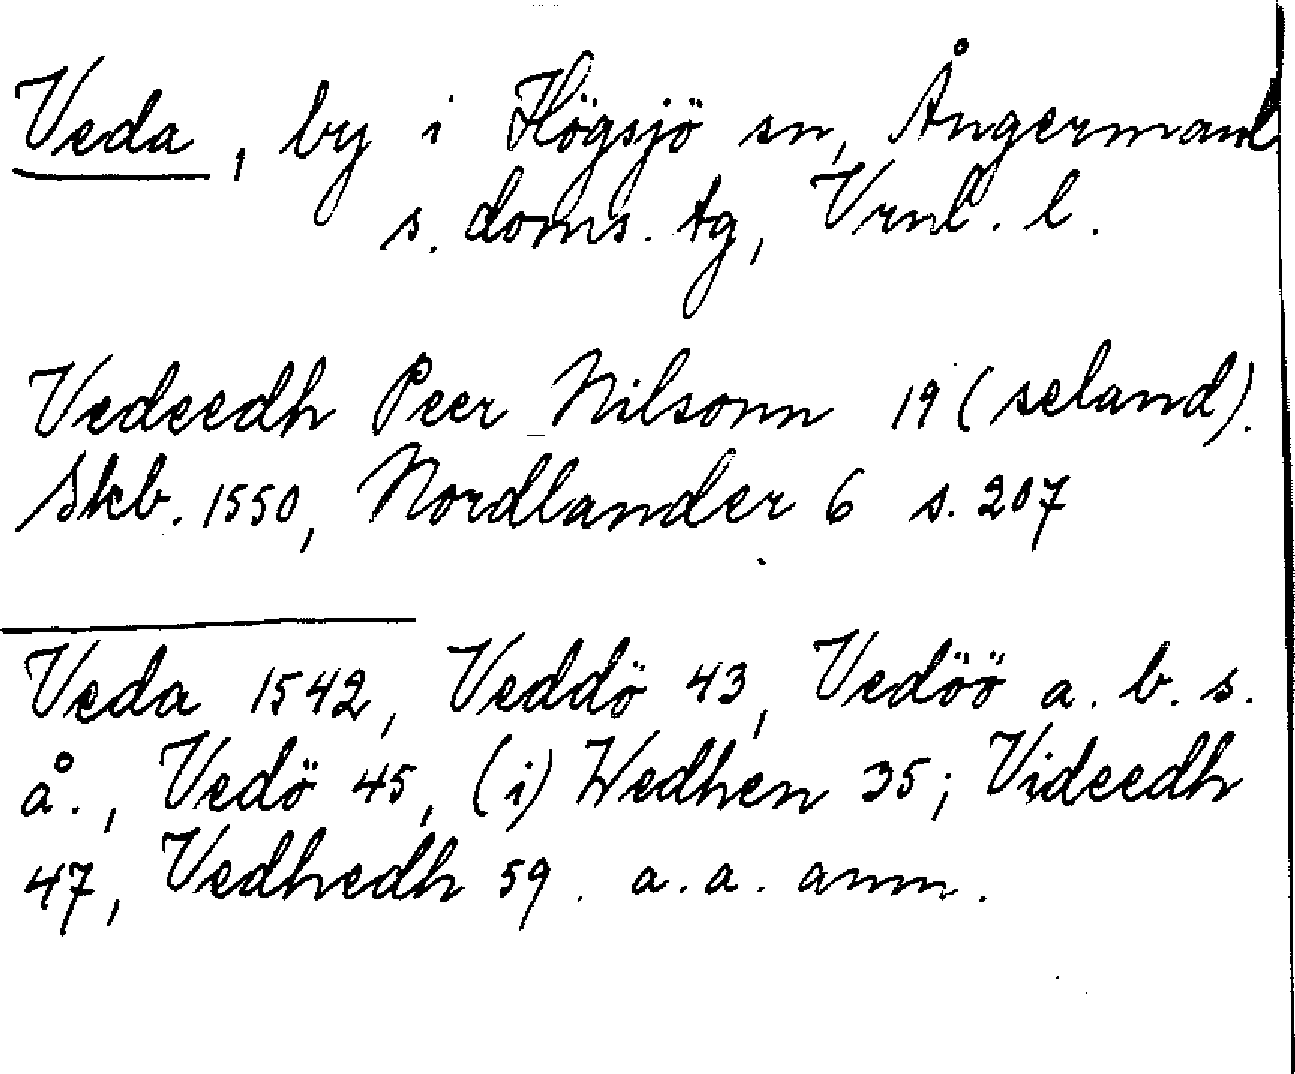 Veda, by i Högsjö sn, Ångermanl.
s. doms. tg, Vrnl. l.
Vedeedh Peer Nilsonn 19 (seland).
Skb. 1550, Nordlander 6 s. 207
Veda 1542, Veddö 43, Vedöö a. b. s.
å., Vedö 45, (i) Wedhen 35; Videedh
47, Vedhedh 59. a. a. anm.